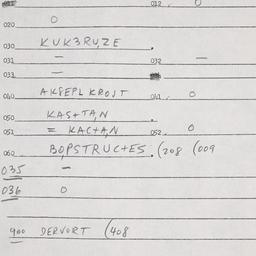 012 0
020 0
030 KUK3RU,ZE .
031 — 032 —
033 —
040 AKSEPL KROJT 041 0
050 KAS+TA,N .
051 = KAC+A,N 052 0
060 BO,PSTRUC+ES . (208 (009
035 —
036 0
900 DERVORT (408